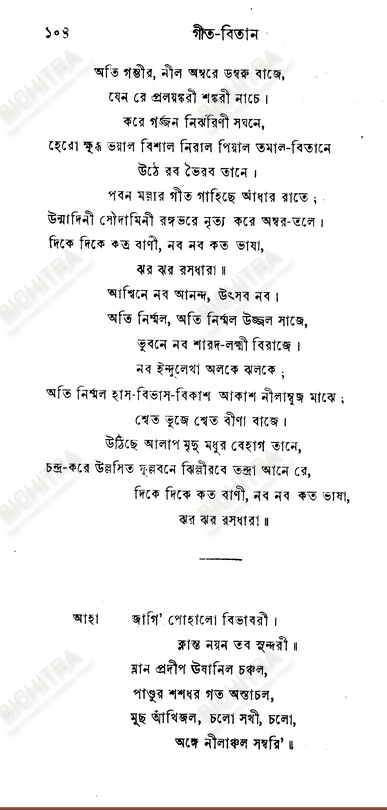 ১০৪ গীত-বিতান
অতি গম্ভীর, নীল অম্বরে ডম্বরু বাজে,
যেন রে প্রলয়ঙ্করী শঙ্করী নাচে।
করে গর্জ্জন নির্ঝরিণী সঘনে,
হেরো ক্ষুব্ধ ভয়াল বিশাল নিরাল পিয়াল তমাল-বিতানে
উঠে রব ভৈরব তানে।
পবন মল্লার গীত গাহিছে আঁধার রাতে ;
উন্মাদিনী সৌদামিনী রঙ্গভরে নৃত্য করে অম্বর-তলে।
দিকে দিকে কত বাণী, নব নব কত ভাষা,
ঝর ঝর রসধারা॥
আশ্বিনে নব আনন্দ, উৎসব নব।
অতি নির্ম্মল, অতি নির্ম্মল উজ্জ্বল সাজে,
ভুবনে নব শারদ-লক্ষ্মী বিরাজে।
নব ইন্দুলেখা অলকে ঝলকে ;
অতি নির্ম্মল হাস-বিভাস-বিকাশ আকাশ নীলাম্বুজ মাঝে ;
শ্বেত ভুজে শ্বেত বীণা বাজে।
উঠিছে আলাপ মৃদু মধুর বেহাগ তানে,
চন্দ্র-করে উল্লসিত ফুল্লবনে ঝিল্লীরবে তন্দ্রা আনে রে,
দিকে দিকে কত বাণী, নব নব কত ভাষা,
ঝর ঝর রসধারা॥
আহা জাগি' পোহালো বিভাবরী।
ক্লান্ত নয়ন তব সুন্দরী॥
ম্লান প্রদীপ ঊষানিল চঞ্চল,
পাণ্ডুর শশধর গত অস্তাচল,
মুছ আঁখিজল, চলো সখী, চলো,
অঙ্গে নীলাঞ্চল সম্বরি'॥
BICHITRA